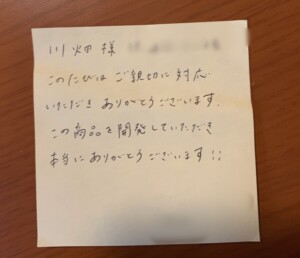 川畑様
このたびは ご親切に対応
いただき ありがとうございます.
この商品を開発していただき
本当に ありがとうございます!!